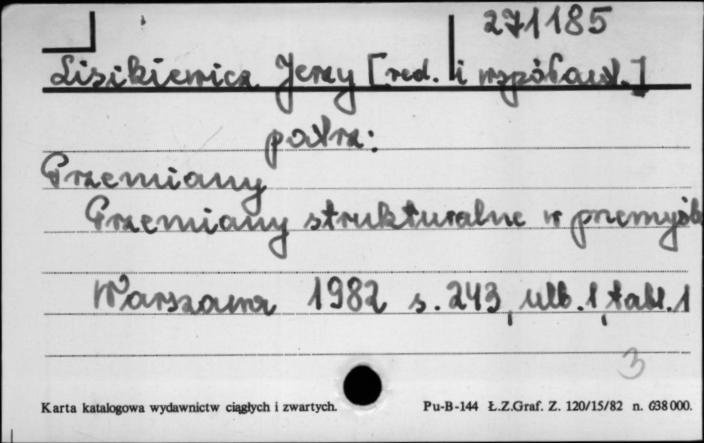 271185
Lisikiewicz Jerzy [red. i współaut.]
patrz:
Przemiany
Przemiany strukturalne w przemyśle
Warszawa 1982 s. 243, nlb. 1, tabl. 1
3
Karta katalogowa wydawnictw ciągłych i zwartych. Pu-B-144 Ł.Z.Graf. Z. 120/15/82 n. 638 000.